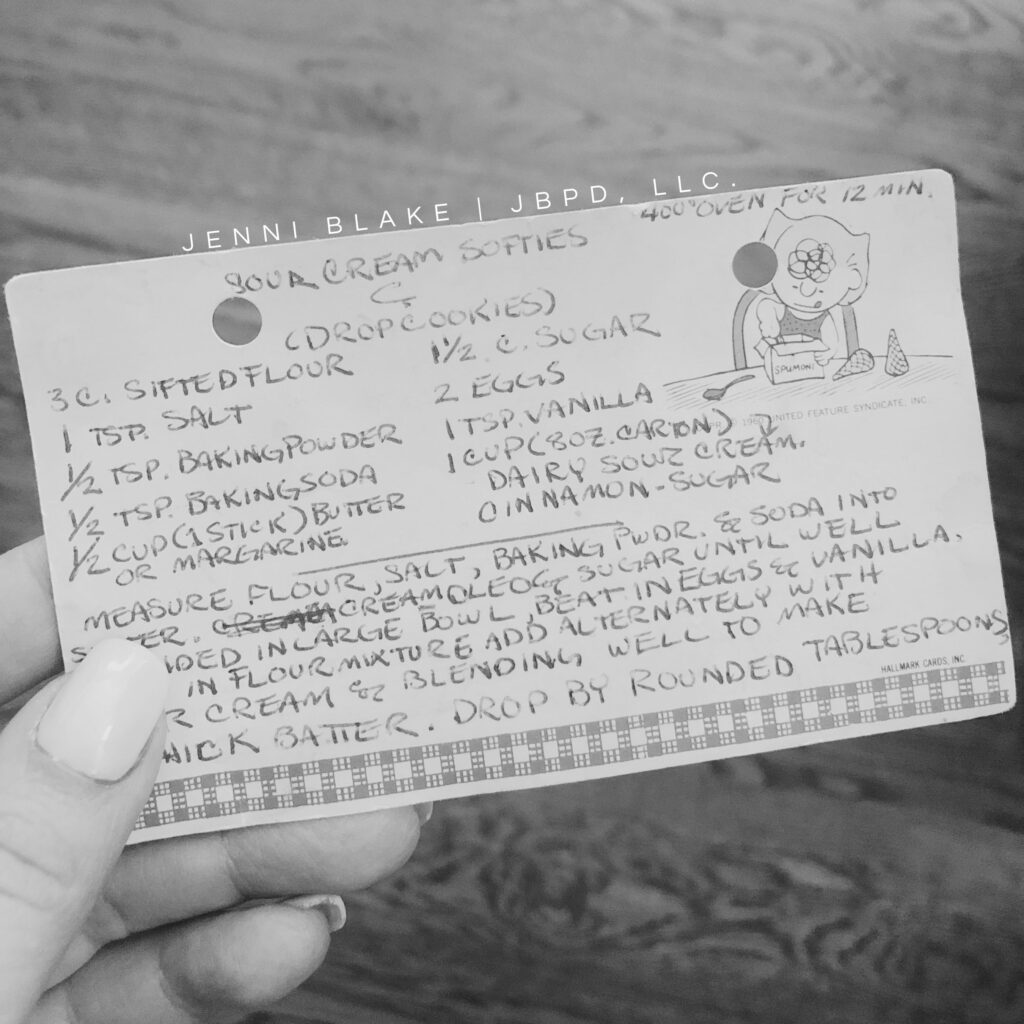 JENNI BLAKE | JBPD, LLC.
400° OVEN FOR 12 MIN.
SOUR CREAM SOFTIES
(DROP COOKIES)
3 C. SIFTED FLOUR
1 TSP. SALT
1/2 TSP. BAKING POWDER
1/2 TSP. BAKING SODA
1/2 CUP (1 STICK) BUTTER
OR MARGARINE.
1 1/2 C. SUGAR
2 EGGS
1 TSP. VANILLA
1 CUP (8 OZ. CARTON)
DAIRY SOUR CREAM.
CINNAMON-SUGAR
SPUMONI
UNITED FEATURE SYNDICATE, INC.
MEASURE FLOUR, SALT, BAKING PWDR. & SODA INTO
CREAM OLEO & SUGAR UNTIL WELL
IN LARGE BOWL, BEAT IN EGGS & VANILLA.
IN FLOUR MIXTURE ADD ALTERNATELY WITH
CREAM & BLENDING WELL TO MAKE
BATTER. DROP BY ROUNDED TABLESPOONS
HALLMARK CARDS, INC.